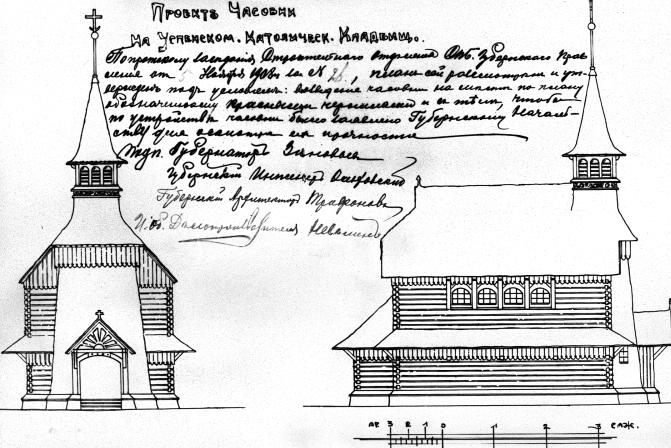 Проектъ Часовни
на Успенском. Католическ. Кладбищ.
По протоколу заседания Строительнаго отделения Спб. Губернскаго Прав-
ления от 5 Ноября 1908 за №, план сей разсмотрен и ут-
вержден под условием: возведение часовни на месте по плану
обозначенному красными чернилами и с тем, чтобы
по устройстве часовни было заявлено Губернскому Началь-
ству для осмотра ея прочности
Подп. Губернатор Зиновьев
Губернский Инженер
Губернский Архитектор Трифонов
И. об. Делопроизводителя
ар 3 2 1 0 1 2 3 саж.